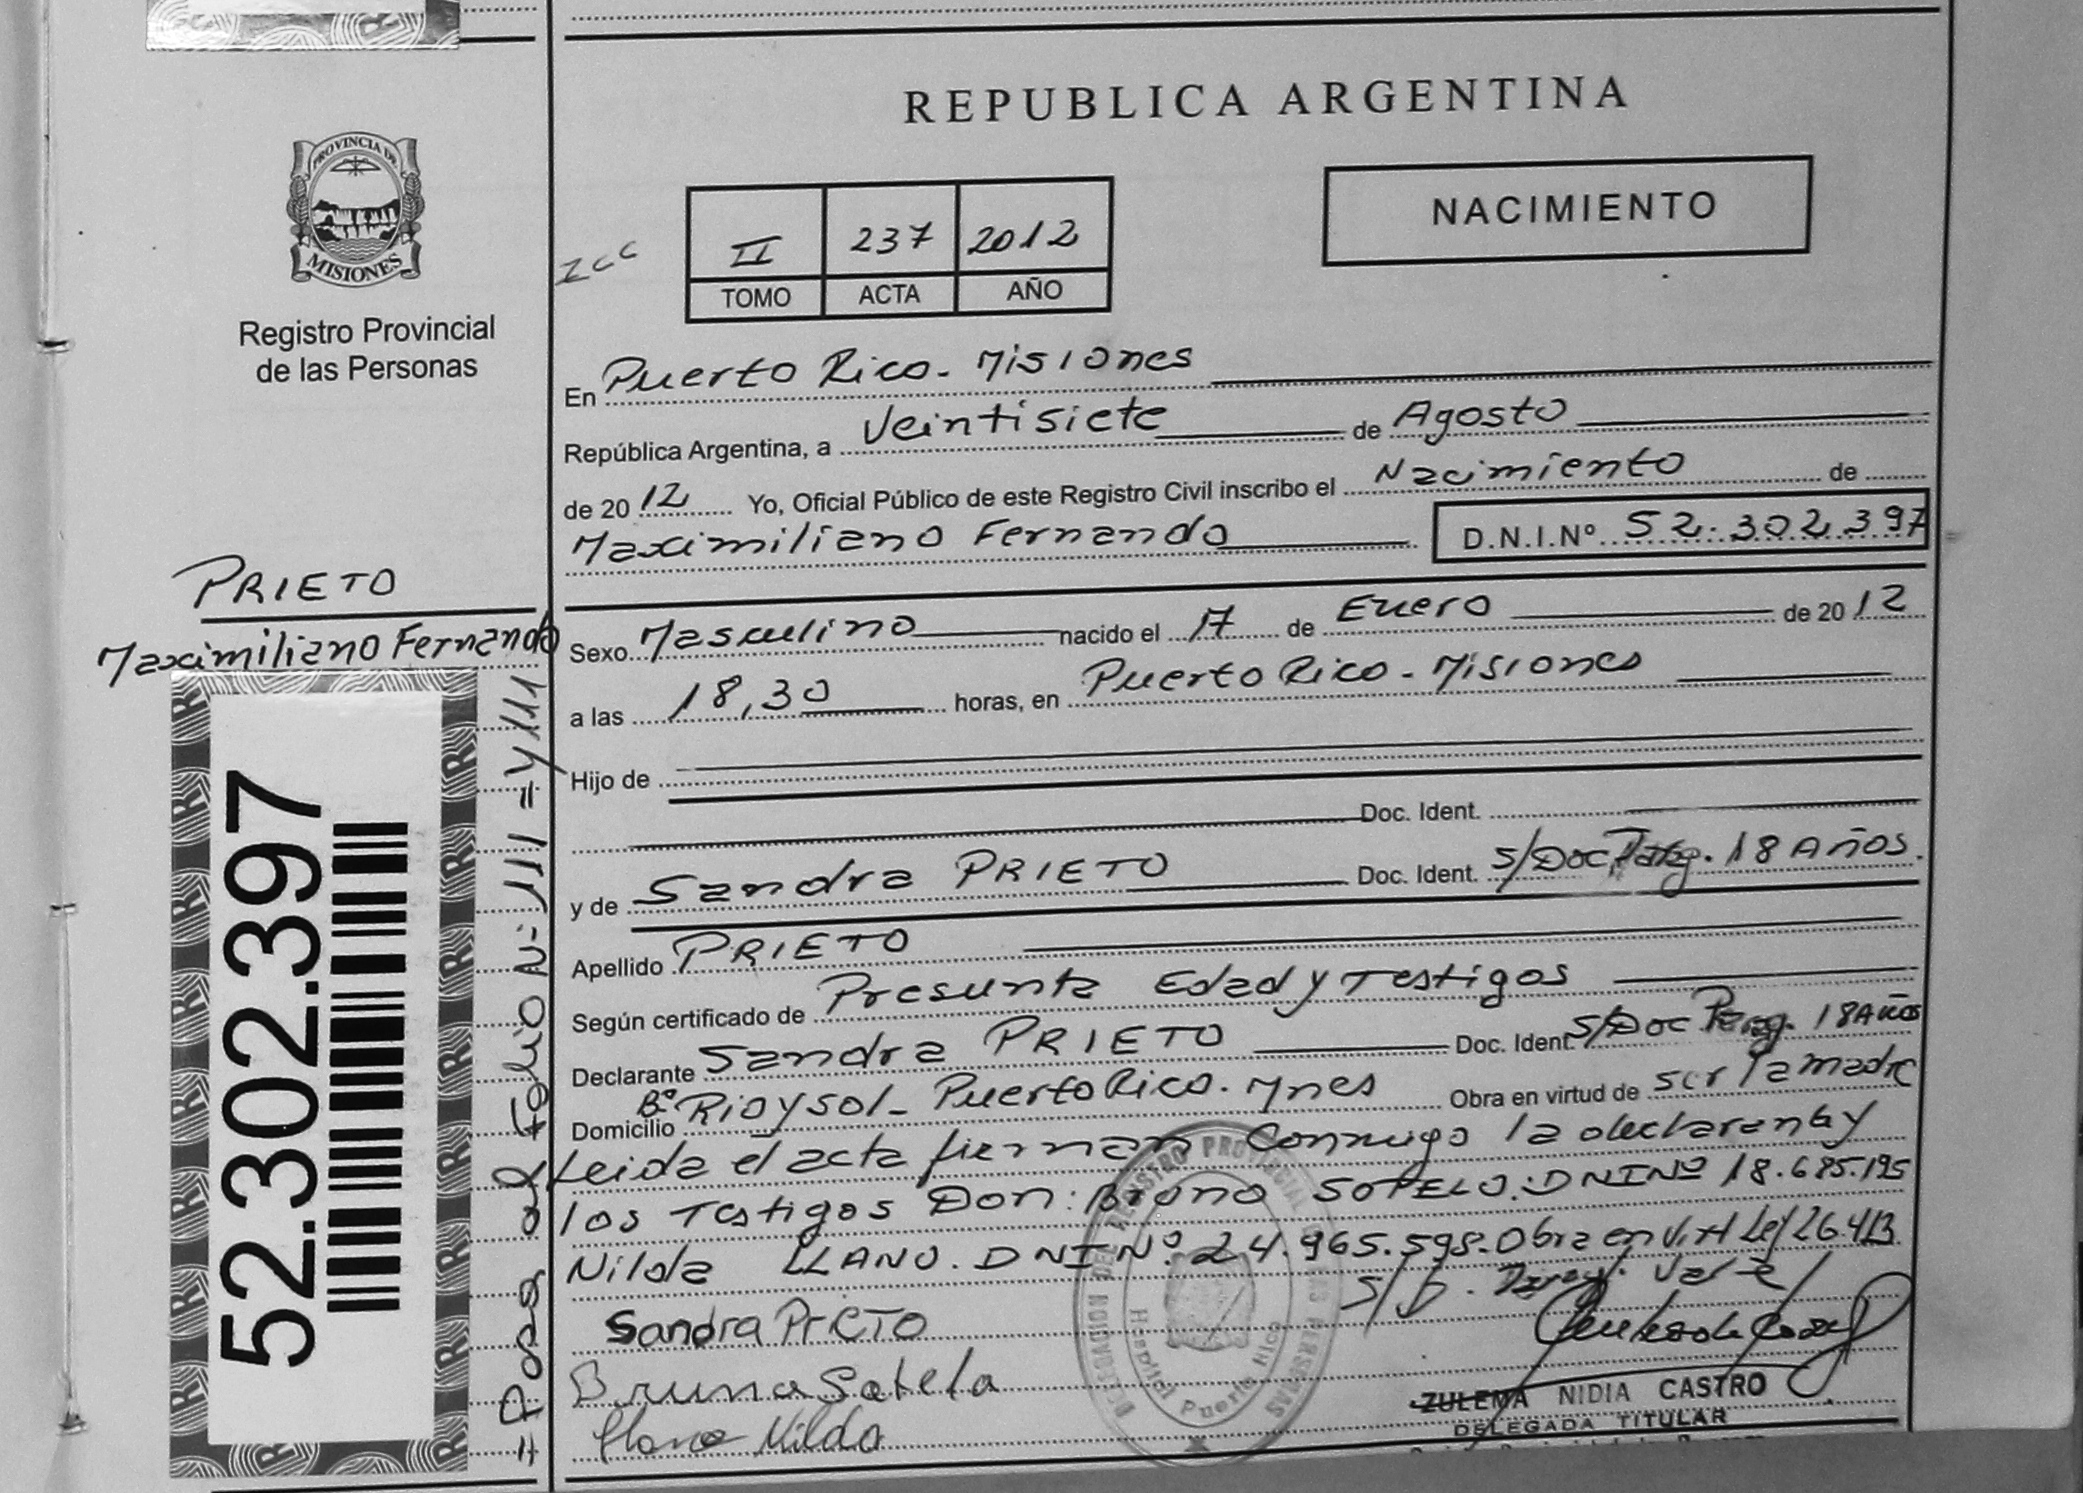 REPUBLICA ARGENTINA
PROVINCIA DE
MISIONES
Registro Provincial
de las Personas
NACIMIENTO
II 237 2012
TOMO ACTA AÑO
En Puerto Rico - Misiones
República Argentina, a Veintisiete de Agosto
de 2012 Yo, Oficial Público de este Registro Civil inscribo el Nacimiento de
Maximiliano Fernando D.N.I.Nº 52.302.397
PRIETO
Maximiliano Fernando
Sexo Masculino nacido el 17 de Enero de 2012
a las 18,30 horas, en Puerto Rico - Misiones
Hijo de
Doc. Ident.
y de Sandra PRIETO Doc. Ident. S/Doc 18 Años.
Apellido PRIETO
Según certificado de Presunta Edad y Testigos
Declarante Sandra PRIETO Doc. Ident S/Doc 18 Años
Domicilio Bº Rio y sol - Puerto Rico. Mnes Obra en virtud de ser la madre
Leida el acta firman conmigo la declarante y
los Testigos Don: Bruno SOTELO. DNI Nº 18.685.195
Nilda LLANO. DNI Nº 24.965.598. Obra en Virt Ley 26.413
Sandra PrieTo
Bruno Sotelo
Llano Nilda
ZULEMA NIDIA CASTRO
DELEGADA TITULAR
DELEGACION DEL REGISTRO PROVINCIAL DE LAS PERSONAS
Hospital Puerto Rico
52.302.397
= Pasa al Folio Nº 111 =